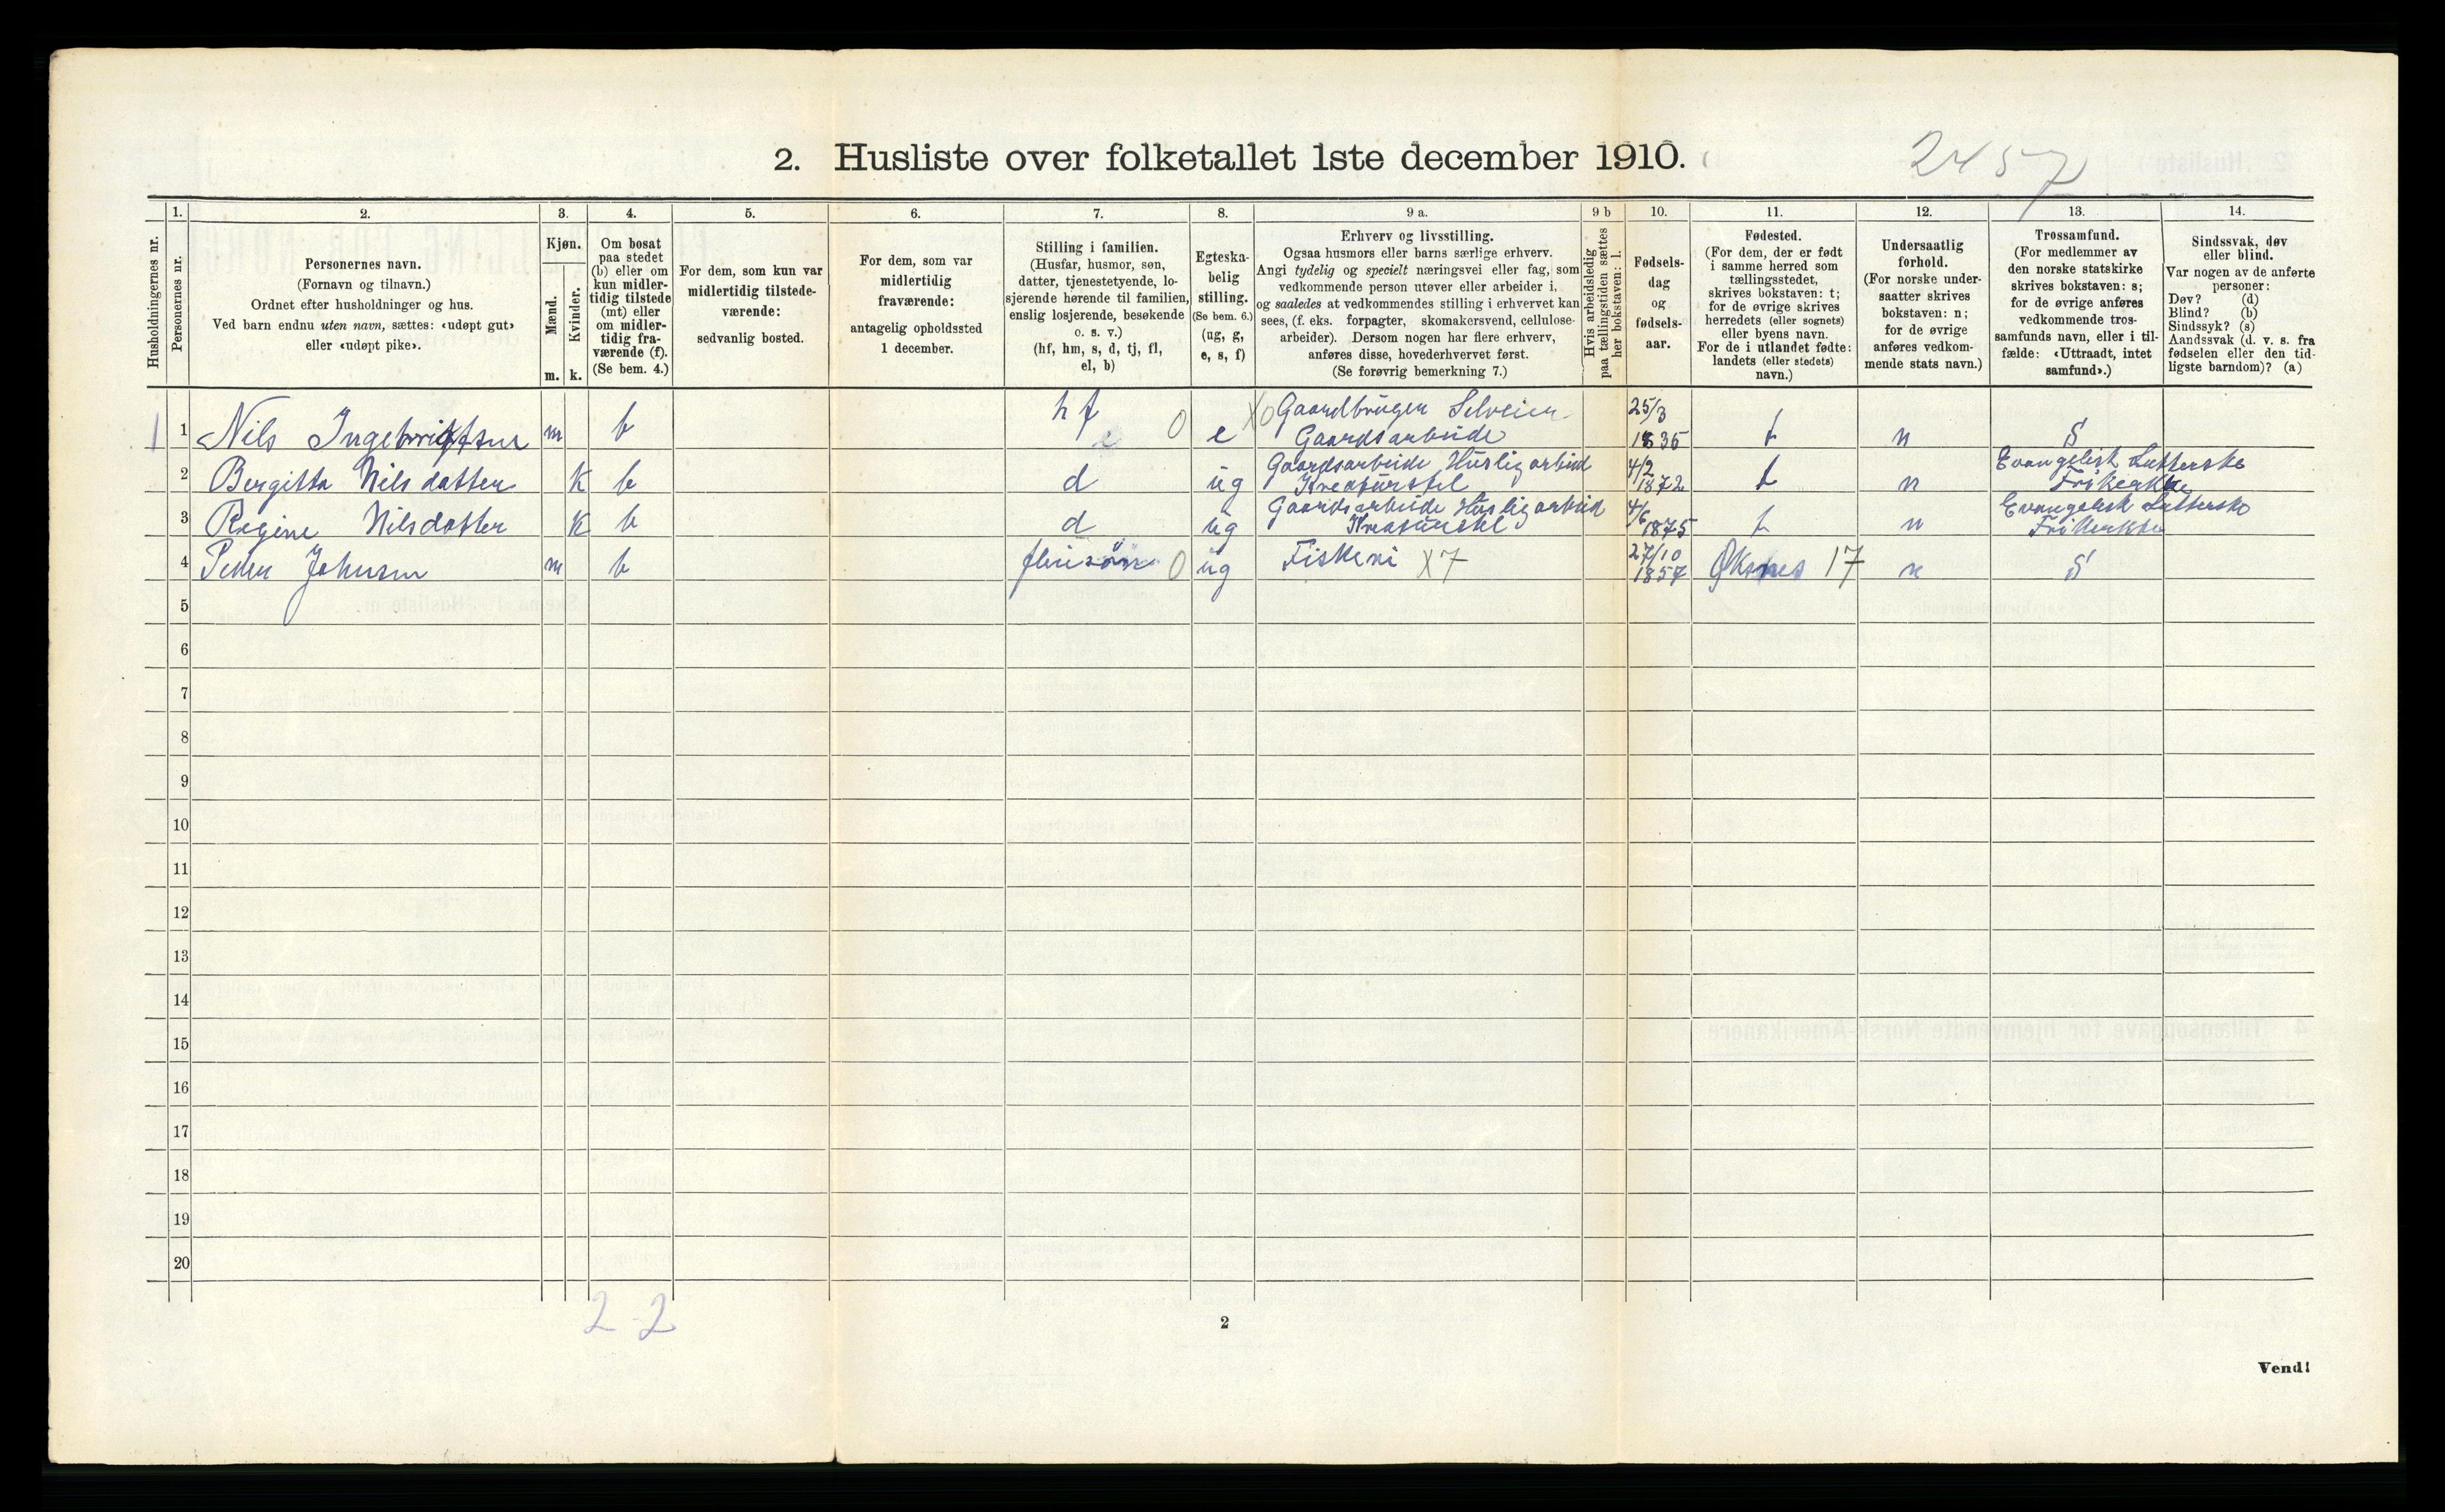 2. Husliste over folketallet 1ste december 1910.
2457
Husholdningernes nr.
1.
Personernes nr.
2.
Personernes navn.
(Fornavn og tilnavn.)
Ordnet efter husholdninger og hus.
Ved barn endnu uten navn, sættes: «udøpt gut»
eller «udøpt pike».
3.
Kjøn.
Mænd.
Kvinder.
m. k.
4.
Om bosat
paa stedet
(b) eller om
kun midler-
tidig tilstede
(mt) eller
om midler-
tidig fra-
værende (f).
(Se bem. 4.)
5.
For dem, som kun var
midlertidig tilstede-
værende:
sedvanlig bosted.
6.
For dem, som var
midlertidig
fraværende:
antagelig opholdssted
1 december.
7.
Stilling i familien.
(Husfar, husmor, søn,
datter, tjenestetyende, lo-
sjerende hørende til familien,
enslig losjerende, besøkende
o. s. v.)
(hf, hm, s, d, tj, fl,
el, b)
8.
Egteska-
belig
stilling.
(Se bem. 6.)
(ug, g,
e, s, f)
9 a.
Erhverv og livsstilling.
Ogsaa husmors eller barns særlige erhverv.
Angi tydelig og specielt næringsvei eller fag, som
vedkommende person utøver eller arbeider i,
og saaledes at vedkommendes stilling i erhvervet kan
sees, (f. eks. forpagter, skomakersvend, cellulose-
arbeider). Dersom nogen har flere erhverv,
anføres disse, hovederhvervet først.
(Se forøvrig bemerkning 7.)
9 b
Hvis arbeidsledig
paa tællingstiden sættes
her bokstaven: l.
10.
Fødsels-
dag
og
fødsels-
aar.
11.
Fødested.
(For dem, der er født
i samme herred som
tællingsstedet,
skrives bokstaven: t;
for de øvrige skrives
herredets (eller sognets)
eller byens navn.
For de i utlandet fødte:
landets (eller stedets)
navn.)
12.
Undersaatlig
forhold.
(For norske under-
saatter skrives
bokstaven: n;
for de øvrige
anføres vedkom-
mende stats navn.)
13.
Trossamfund.
(For medlemmer av
den norske statskirke
skrives bokstaven: s;
for de øvrige anføres
vedkommende tros-
samfunds navn, eller i til-
fælde: «Uttraadt, intet
samfund».)
14.
Sindssvak, døv
eller blind.
Var nogen av de anførte
personer:
Døv? (d)
Blind? (b)
Sindssyk? (s)
Aandssvak (d. v. s. fra
fødselen eller den tid-
ligste barndom)? (a)
1 1 Nils Ingebrigtsen m b hf 0 e X0 Gaardbruger Selveier Gaardsarbeide 25/3 1835 t n S
2 Bergitta Nilsdatter K b d ug Gaardsarbeide Huslig arbeid Kreaturstel 4/2 1872 t n Evangelisk Lutterske Frikerke
3 Regine Nilsdatter K b d ug Gaardsarbeide Huslig arbeid Kreaturstel 4/6 1875 t n Evangelisk Lutterske Frikerke
4 Peder Johnsen m b 0 ug Fiskeri X7 27/10 1857 Øksnes 17 n S
5
6
7
8
9
10
11
12
13
14
15
16
17
18
19
20
2-2
2
Vend!